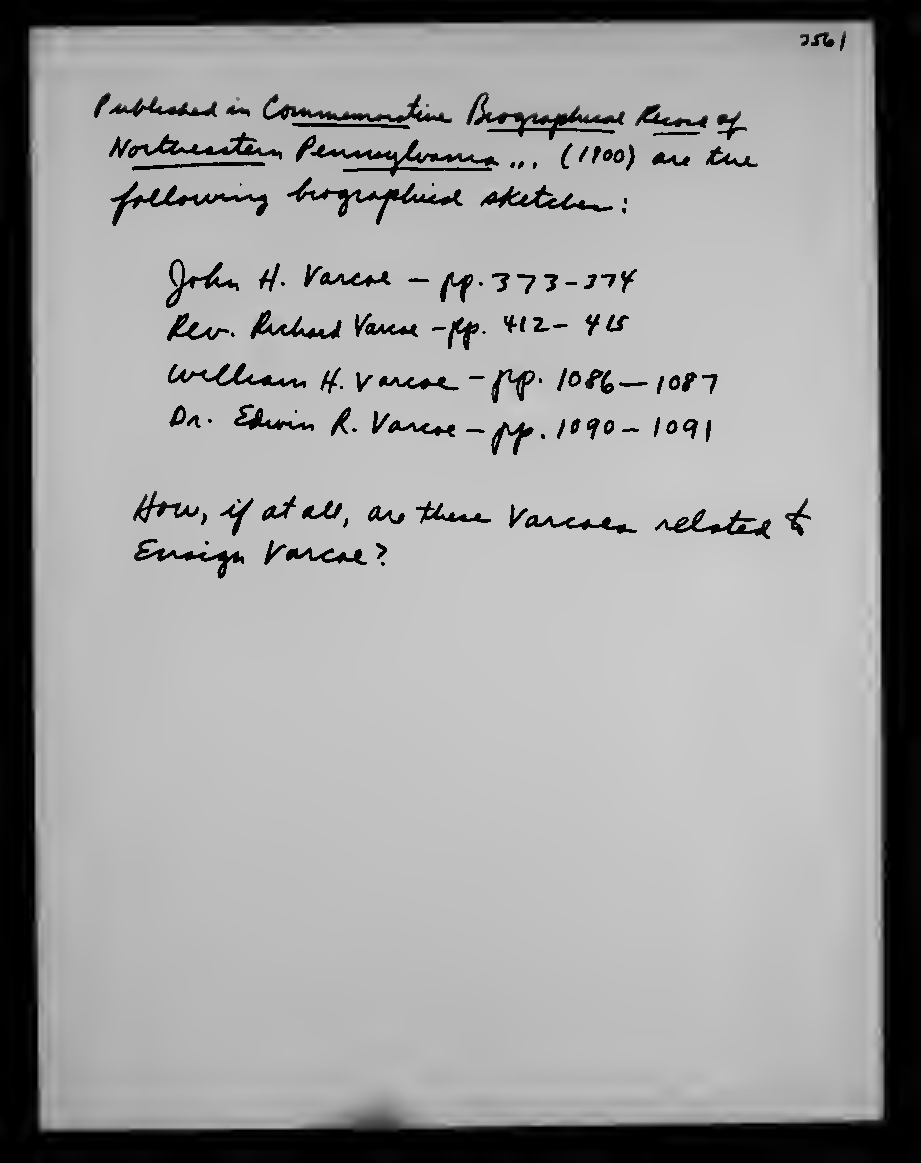 3561
Published in Commemorative Biographical Record of
Northeastern Pennsylvania ... (1900) are the
following biographical sketches:
John H. Varcoe - pp. 373-374
Rev. Richard Varcoe - pp. 412-415
William H. Varcoe - pp. 1086-1087
Dr. Edwin R. Varcoe - pp. 1090-1091
How, if at all, are these Varcoes related to
Ensign Varcoe?